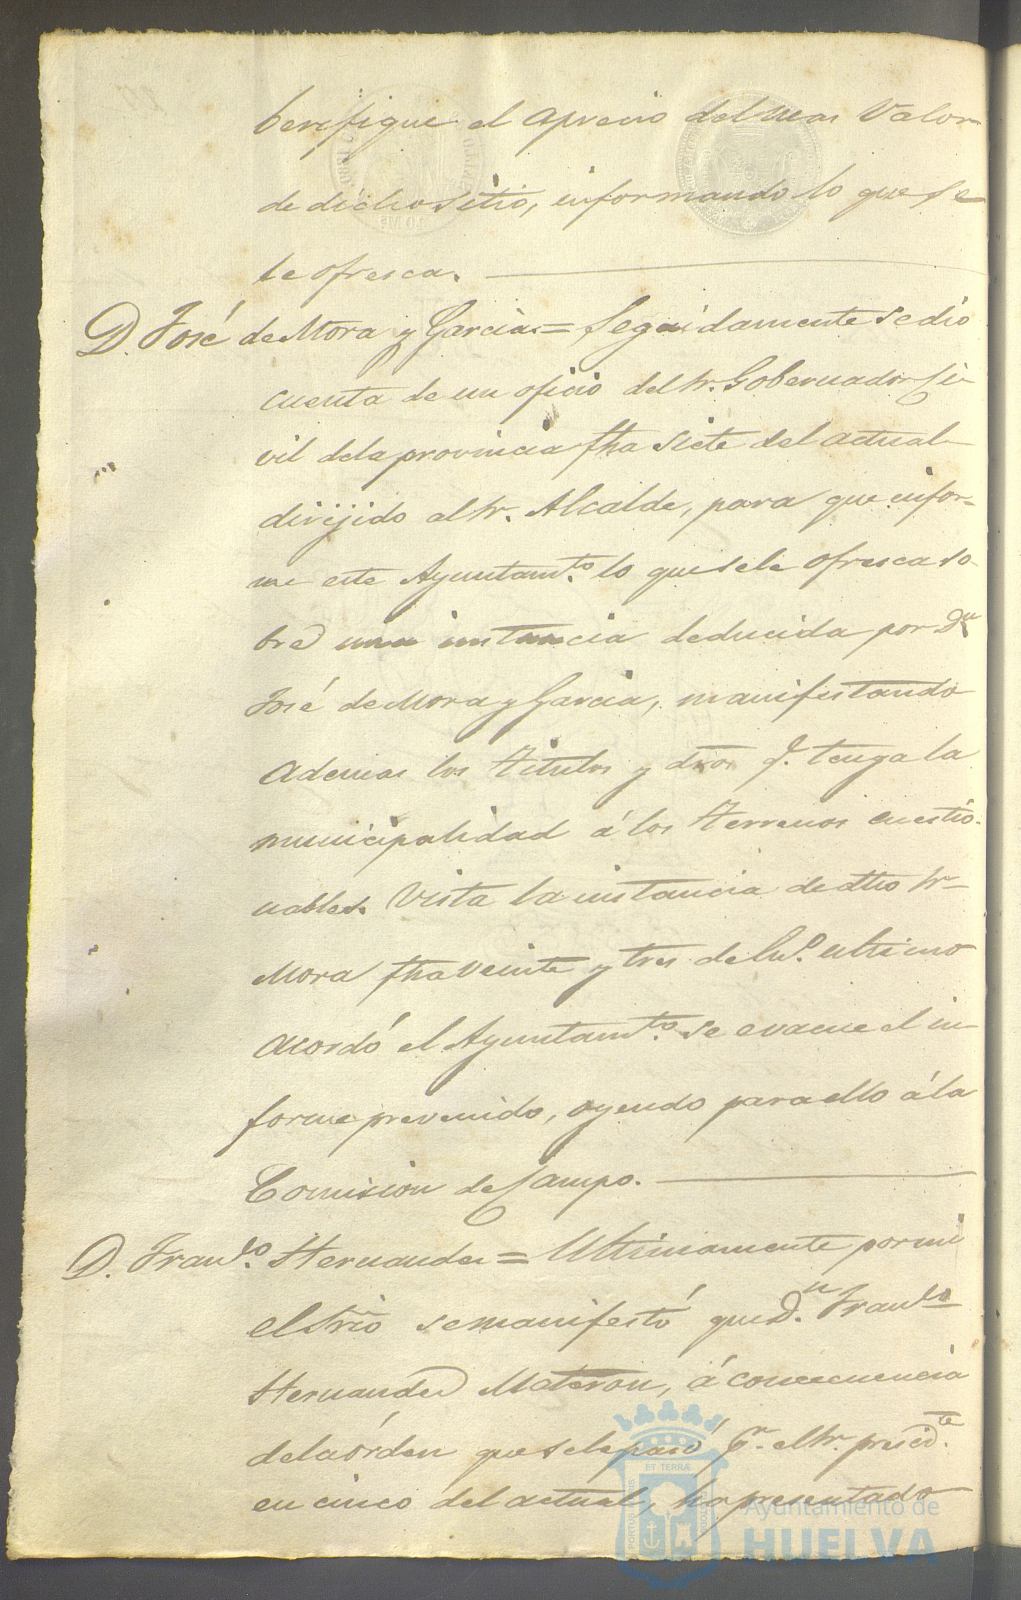 berifique el aprecio del mas Valor
de dicho sitio, informando lo que se
le ofresca.
D. José de Mora y Garcia = Seguidamente se dio
cuenta de un oficio del Sr. Gobernador Ci-
vil dela provincia fha siete del actual
dirijido al Sr. Alcalde, para que infor-
me este Ayuntamto. lo que se le ofresca so-
bre una instancia deducida por Dn
José de Mora y Garcia, manifestando
Ademas los titulos y dros q. tenga la
municipalidad á los terrenos cuestio-
nables. Vista la instancia de dho Sr
Mora fha veinte y tres de En.o ultimo
acordó el Ayuntamto. se evacue el in
forme prevenido, oyendo para ello á la
Comision de Campo.
D. Franco. Hernandez = Ultimamente por mi
el Srio se manifestó que Dn. Franco
Hernandez Materon, á concecuencia
dela órden que se le pasó pr. el Sr. presidte.
en cinco del actual, ha presentado
PORTUS MARIS ET TERRÆ CUSTODIA
Ayuntamiento de
HUELVA